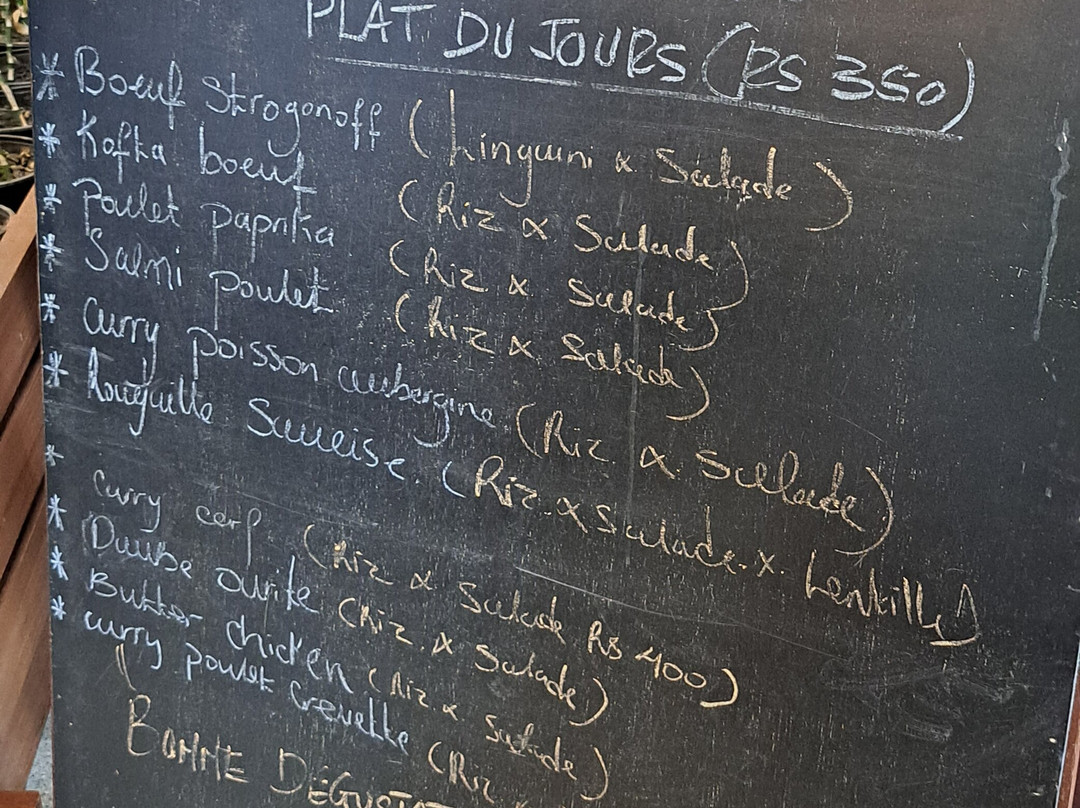 PLAT DU JOURS (RS 350)
* Boeuf Strogonoff (Linguini & Salade)
* Kofta boeuf (Riz & Salade)
* Poulet paprika (Riz & Salade)
* Salmi poulet (Riz & Salade)
* Curry poisson aubergine (Riz & Sallade)
* Rougaille (Riz & Salade & Lentille)
* Curry cerf (Riz & Salade RS 400)
* Daube ourite (Riz & Salade)
* Butter chicken (Riz & Salade)
* curry poulet crevette (Riz
BOMME DEGUSTAT